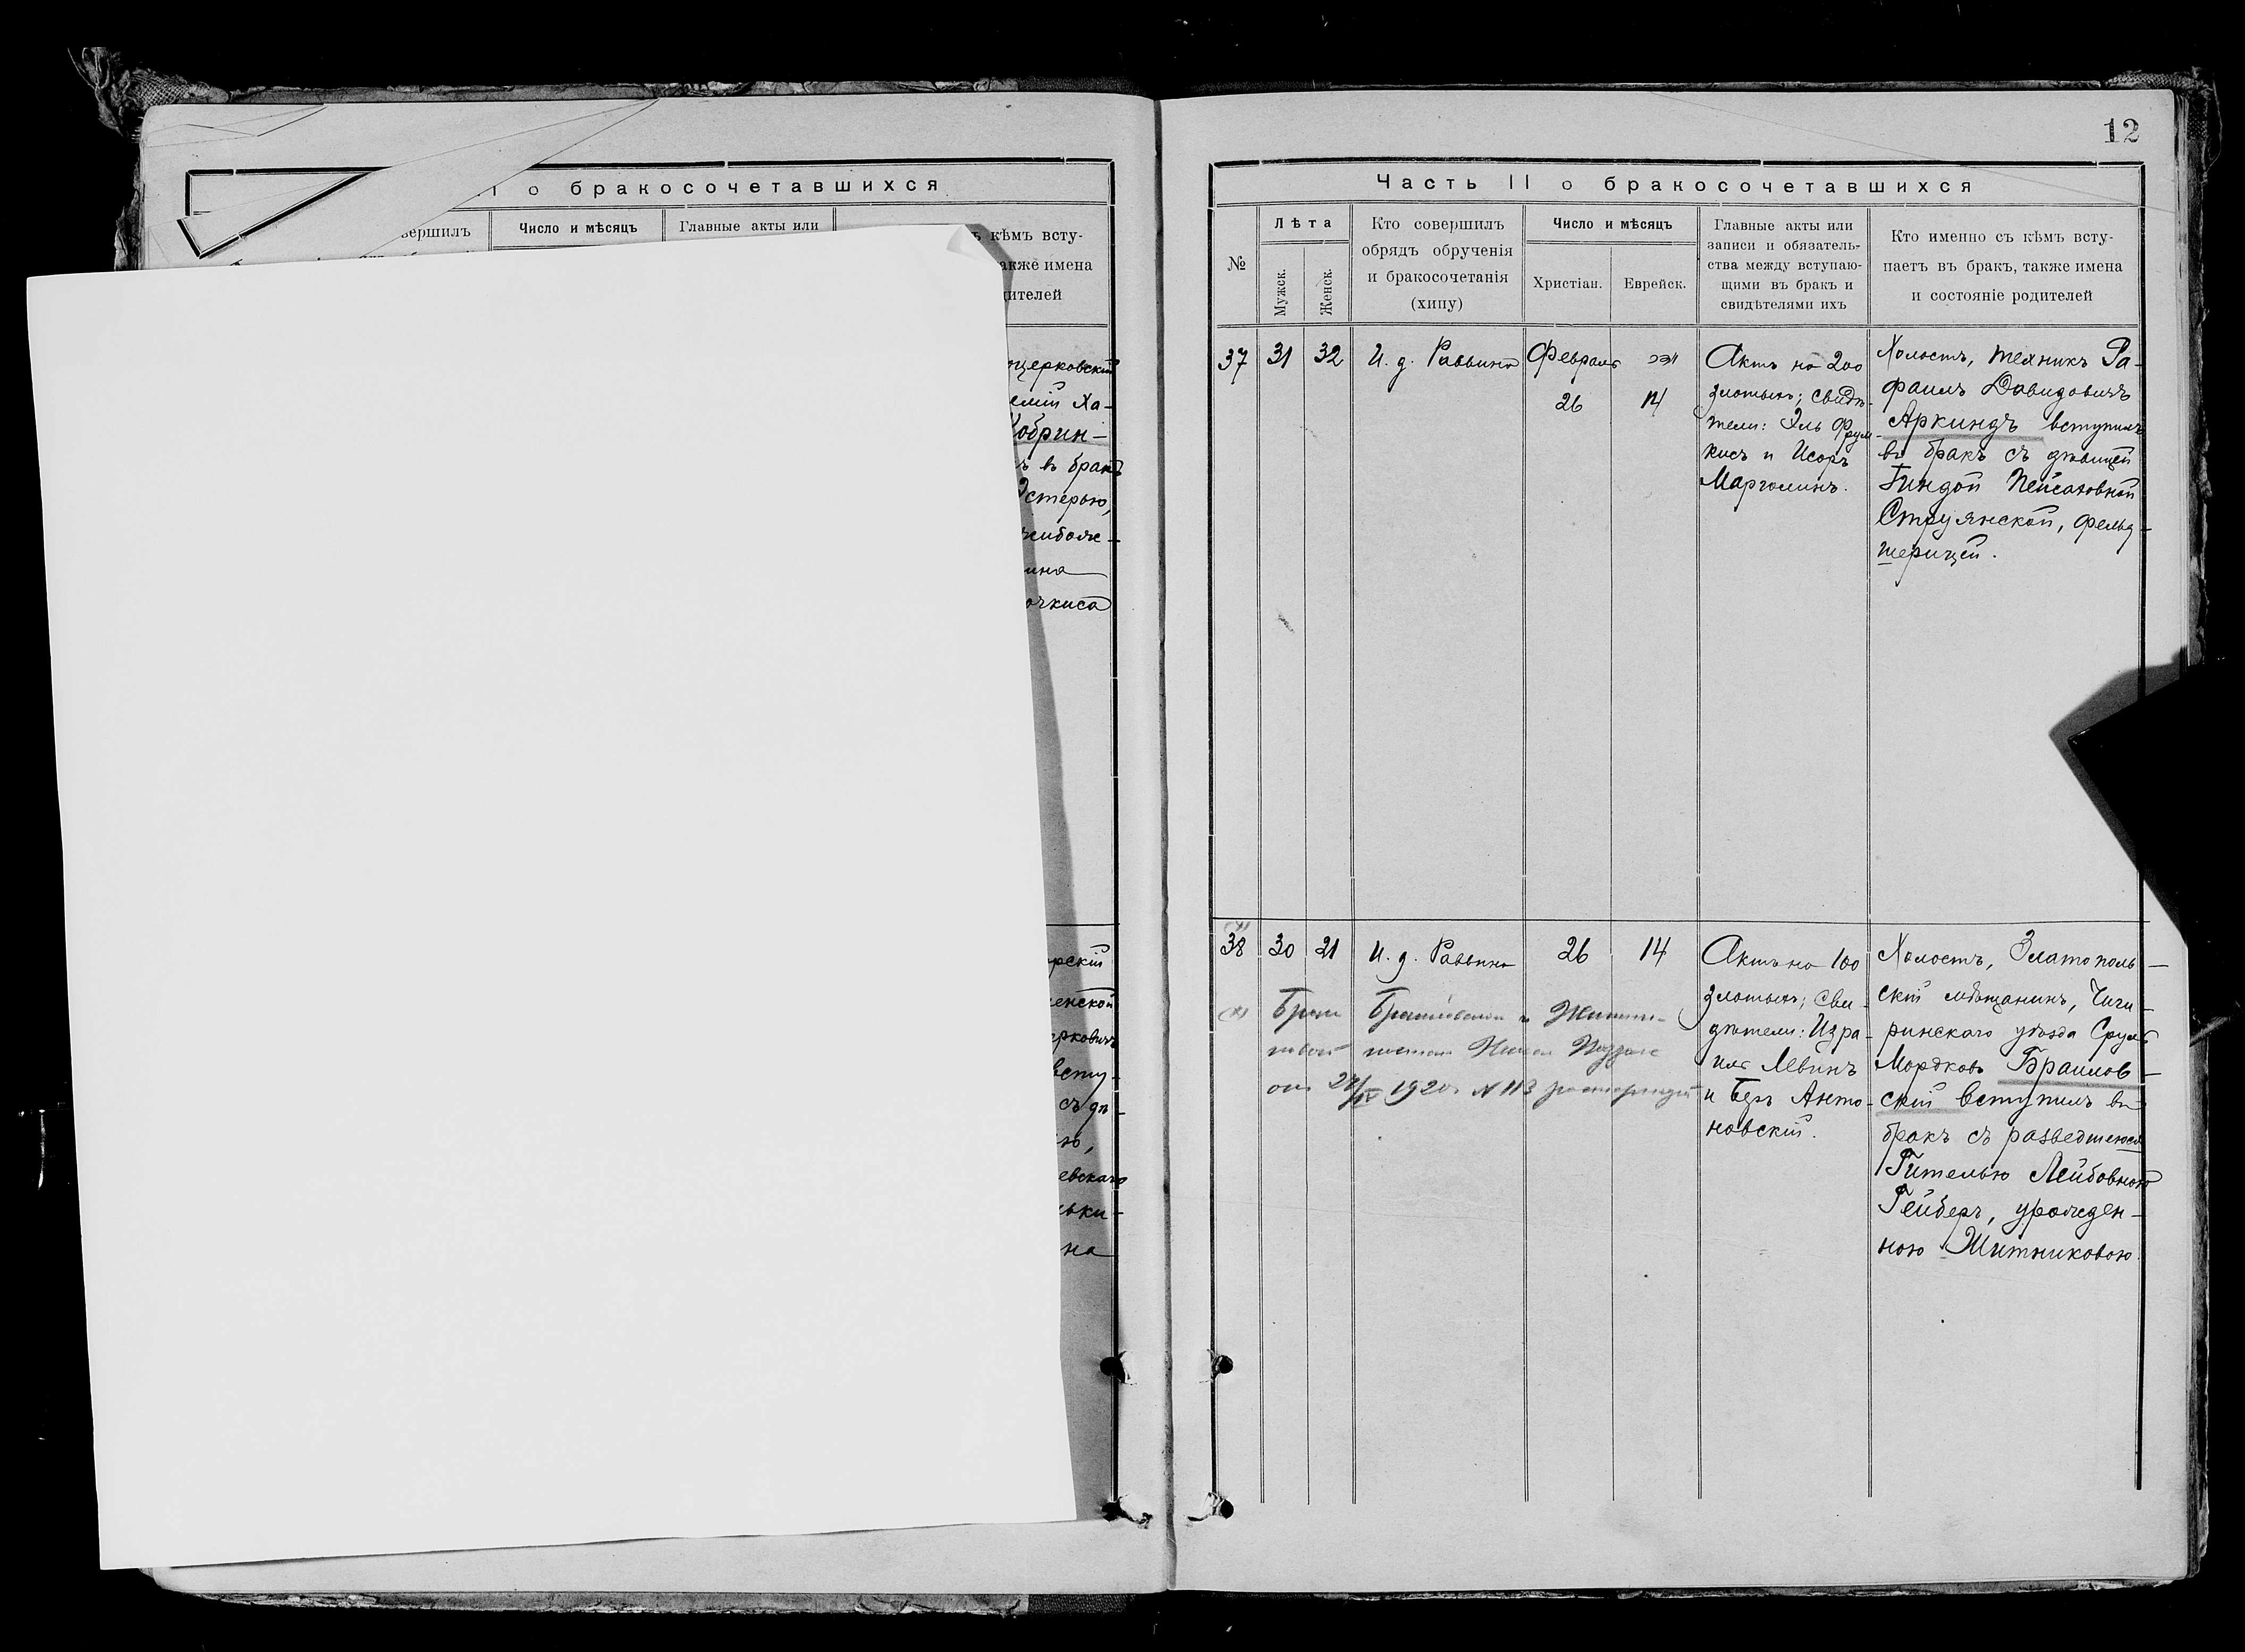 о бракосочетавшихся
Число и мѣсяцъ
Главные акты или
кѣмъ всту-
акже имена
ителей
церковскій
Ха-
Кобрин-
въ бракъ
Эстерью,
12
Часть II о бракосочетавшихся
№
Лѣта
Мужск.
Женск.
Кто совершилъ
обрядъ обрученія
и бракосочетанія
(хипу)
Число и мѣсяцъ
Христіан.
Еврейск.
Главные акты или
записи и обязатель-
ства между вступаю-
щими въ бракъ и
свидѣтелями ихъ
Кто именно съ кѣмъ всту-
паетъ въ бракъ, также имена
и состояніе родителей
37
31
32
И. д. Раввина
Февраль
26
14
Актъ на 200
злотыхъ; свидѣ-
тели: Эль Фрум-
кисъ и Исоръ
Марголинъ.
Холостъ, техникъ Ра-
фаилъ Давидовичъ
Аркиндъ вступилъ
въ бракъ съ дѣвицей
Гиндой Пейсаховной
Струянской, фельд-
шерицей.
38
30
21
И. д. Раввина
26
14
Актъ на 100
злотыхъ; сви-
дѣтели: Изра-
иль Левинъ
и Беръ Анто-
новскій.
Холостъ, Златополь-
скій мѣщанинъ, Чиги-
ринскаго уѣзда Сруль
Мордковъ Браилов-
скій вступилъ въ
бракъ съ разведшеюся
Гителью Лейбовною
Гейберъ, урожден-
ною Житниковою.
Брак Браиловского и Житни-
ковой
от 27/IV 1920 г № 113 расторгнут